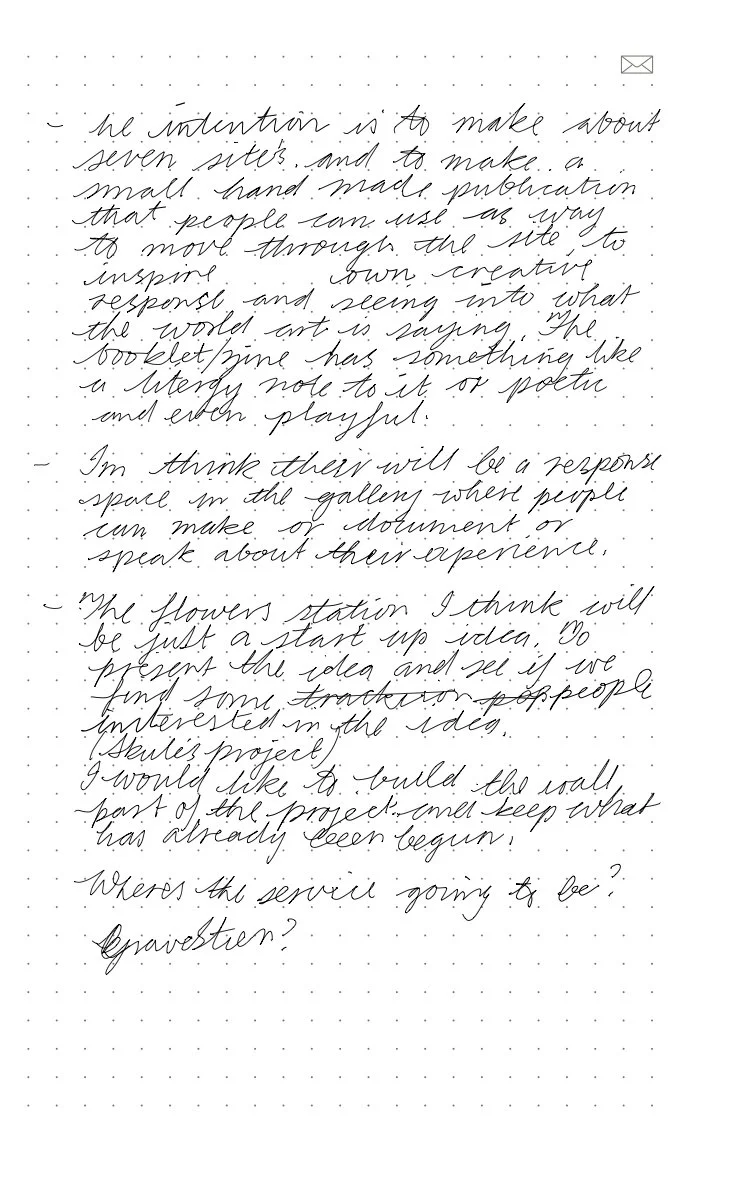 - he intention is to make about
seven site's and to make a
small hand made publication
that people can use as way
to move through the site, to
inspire own creative
response and seeing into what
the world art is saying. The
booklet/zine has something like
a litergy note to it or poetic
and even playful.
- Im think their will be a response
space in the gallery where people
can make or document or
speak about their experience.
- The flowers station I think will
be just a start up idea. To
present the idea and see if we
find some people
interested in the idea.
(Skulis project)
I would like to build the wall
part of the project and keep what
has already been begun.
Wheres the service going to be?